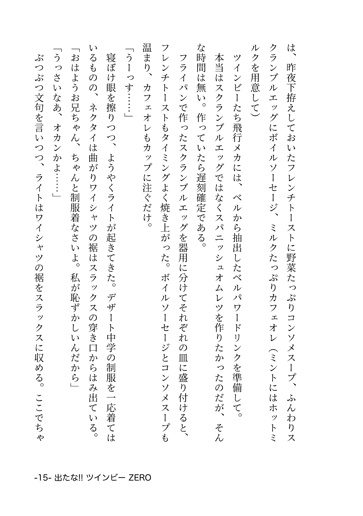 は、昨夜下拵えしておいたフレンチトーストに野菜たっぷりコンソメスープ、ふんわりス
クランブルエッグにボイルソーセージ、ミルクたっぷりカフェオレ（ミントにはホットミ
ルクを用意して）
　ツインビーたち飛行メカには、ベルから抽出したベルパワードリンクを準備して。
　本当はスクランブルエッグではなくスパニッシュオムレツを作りたかったのだが、そん
な時間は無い。作っていたら遅刻確定である。
　フライパンで作ったスクランブルエッグを器用に分けてそれぞれの皿に盛り付けると、
フレンチトーストもタイミングよく焼き上がった。ボイルソーセージとコンソメスープも
温まり、カフェオレもカップに注ぐだけ。
「うーっす……」
　寝ぼけ眼を擦りつつ、ようやくライトが起きてきた。デザート中学の制服を一応着ては
いるものの、ネクタイは曲がりワイシャツの裾はスラックスの穿き口からはみ出ている。
「おはようお兄ちゃん、ちゃんと制服着なさいよ。私が恥ずかしいんだから」
「うっさいなあ、オカンかよ……」
　ぶつぶつ文句を言いつつ、ライトはワイシャツの裾をスラックスに収める。ここでちゃ
-15- 出たな!! ツインビー ZERO